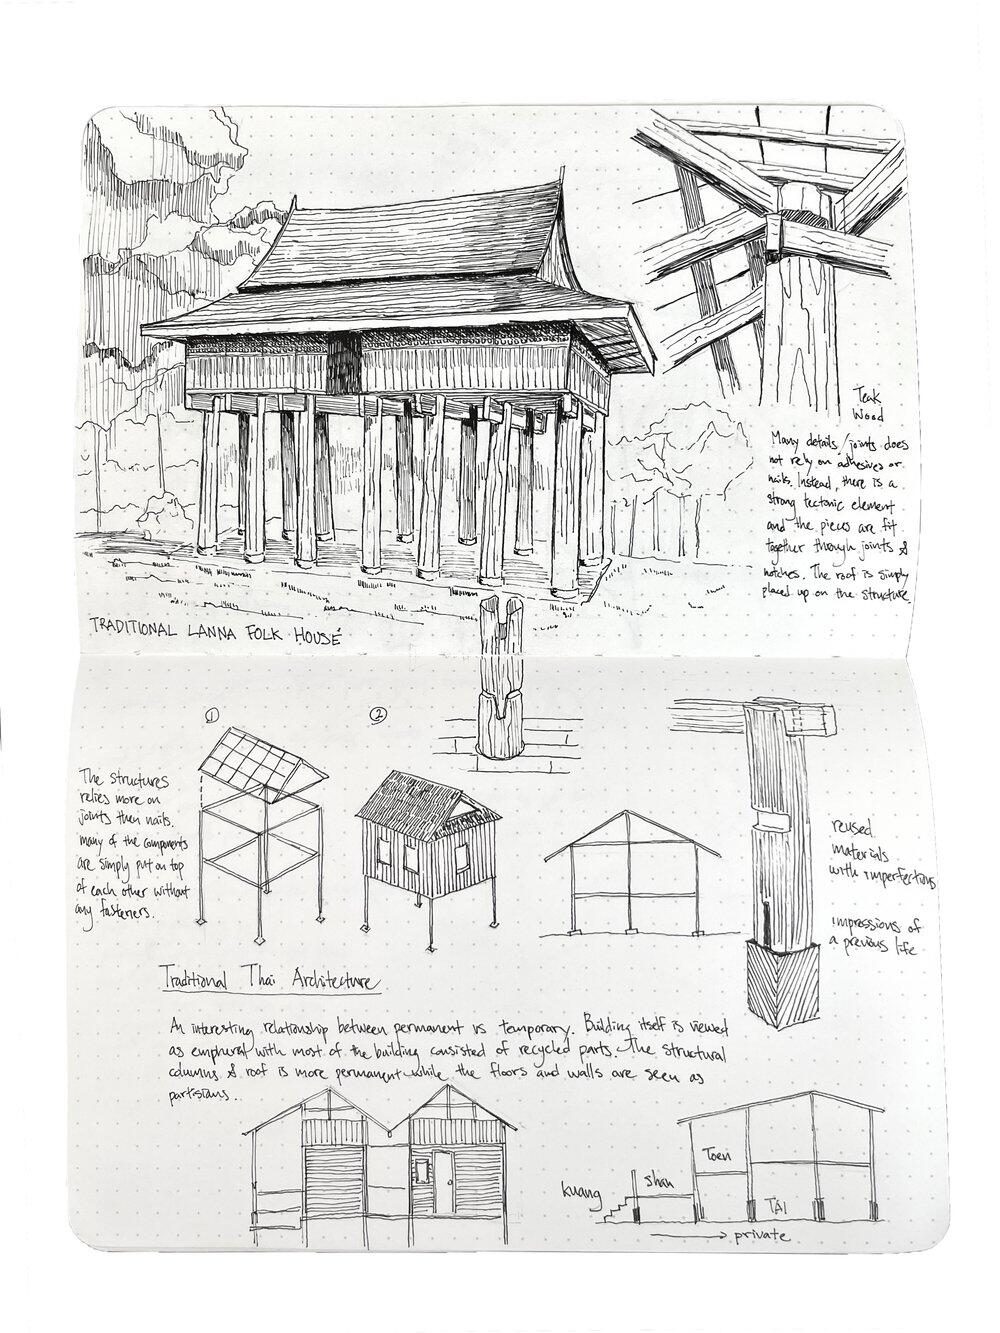 Teak
Wood
Many details/joints does
not rely on adhesives or
nails. Instead, there is a
strong tectonic element
and the pieces are fit
together through joints &
notches. The roof is simply
placed up on the structure
TRADITIONAL LANNA FOLK HOUSE
1
2
The structures
relies more on
joints then nails.
many of the components
are simply put on top
of each other without
any fasteners.
reused
materials
with imperfections
impressions of
a previous life
Traditional Thai Architecture
An interesting relationship between permanent vs temporary. Building itself is viewed
as empheral with most of the building consisted of recycled parts. The structural
columns & roof is more permanent while the floors and walls are seen as
partisians.
Toen
shan
kuang
TAI
private